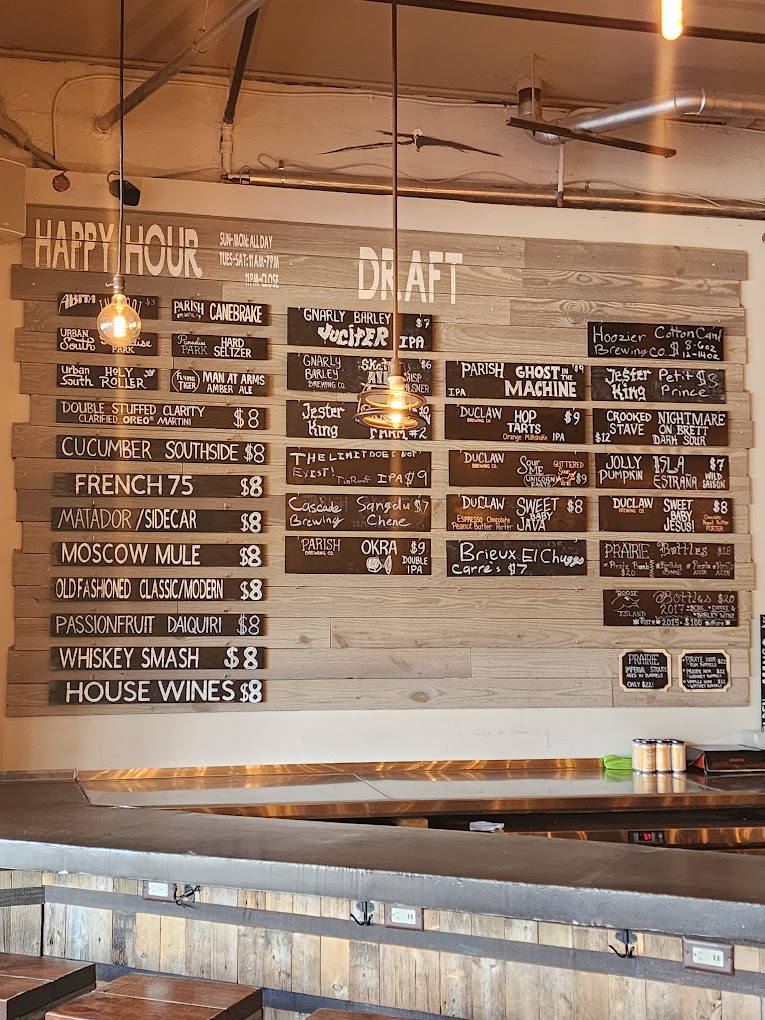 HAPPY HOUR
SUN-MON: ALL DAY
TUES-SAT: 11AM-7PM
11PM-CLOSE
ABITA $3
PARISH CANEBRAKE
URBAN South PARK
Paradise PARK HARD SELTZER
Urban South HOLY ROLLER
FLYING TIGER MAN AT ARMS AMBER ALE
DOUBLE STUFFED CLARITY $8
CLARIFIED OREO® MARTINI
CUCUMBER SOUTHSIDE $8
FRENCH 75 $8
MATADOR/SIDECAR $8
MOSCOW MULE $8
OLD FASHIONED CLASSIC/MODERN $8
PASSIONFRUIT DAIQUIRI $8
WHISKEY SMASH $8
HOUSE WINES $8
DRAFT
GNARLY BARLEY $7
JUCIFER IPA
GNARLY BARLEY BREWING CO. $6
Jester King #2
THE LIMIT DOES NOT EXIST! TinRoof IPA $9
Cascade Brewing Sangdu Chene $7
PARISH BREWING CO. OKRA $9
DOUBLE IPA
PARISH GHOST IN THE MACHINE $9
IPA
DUCLAW BREWING CO. HOP TARTS $9
Orange Milkshake IPA
DUCLAW BREWING CO. Sour ME UNICORN FARTS GLITTERED $9
DUCLAW BREWING CO. SWEET BABY JAVA $8
ESPRESSO Chocolate Peanut Butter Porter
Brieux Carré's El Chupo $7
Hoozier Cotton Cand
Brewing Co. $8-6oz
$12-14oz
Jester King Petit Prince $8
CROOKED STAVE NIGHTMARE ON BRETT
$12 DARK SOUR
JOLLY PUMPKIN ISLA ESTRANA $7
WILD SAISON
DUCLAW BREWING CO. SWEET BABY JESUS! $8
Chocolate Peanut Butter PORTER
PRAIRIE Bottles $18
GOOSE ISLAND Bottles $20
2017
2015 - $100
PRAIRIE
IMPERIAL STOUTS
AGED IN BARRELS
ONLY $22!
PIRATE NOIR $22
RUM BARRELS
PRAIRIE NOIR $22
WHISKEY BARRELS
VANILLA NOIR $22
WHISKEY BARRELS